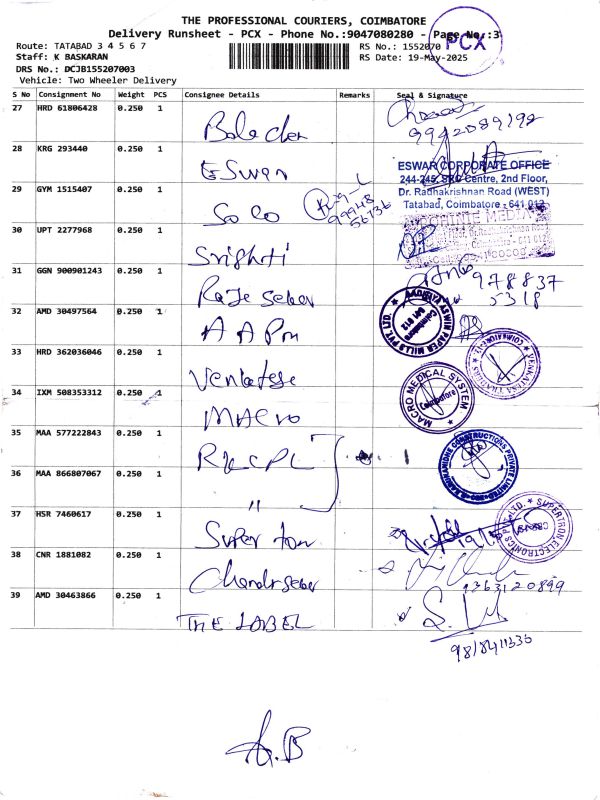 THE PROFESSIONAL COURIERS, COIMBATORE
Delivery Runsheet - PCX - Phone No.:9047080280 - Page No.:3
PCX
Route: TATABAD 3 4 5 6 7
RS No.: 1552070
Staff: K BASKARAN
RS Date: 19-May-2025
DRS No.: DCJB155207003
Vehicle: Two Wheeler Delivery
S No Consignment No Weight PCS Consignee Details Remarks Seal & Signature
27 HRD 61806428 0.250 1
9942089198
28 KRG 293440 0.250 1 Eswar
ESWAR CORPORATE OFFICE
244-245, SRC Centre, 2nd Floor,
Dr. Radhakrishnan Road (WEST)
Tatabad, Coimbatore - 641 012
29 GYM 1515407 0.250 1 Solo
99948
56736
30 UPT 2277968 0.250 1 Srishti
31 GGN 900901243 0.250 1 Rajesekar
978837
5318
32 AMD 30497564 0.250 1 AAPM
AADHIYA ASHWIN PAPER MILLS PVT. LTD.
Coimbatore
641 012
33 HRD 362036046 0.250 1 Venkatese
34 IXM 508353312 0.250 1 Macro
MACRO MEDICAL SYSTEM
Coimbatore
35 MAA 577222843 0.250 1 RKCPL
CONSTRUCTIONS PRIVATE LIMITED
36 MAA 866807067 0.250 1 "
37 HSR 7460617 0.250 1 Super tron
SUPERTRON ELECTRONICS PVT. LTD.
38 CNR 1881082 0.250 1 Chandrsekar
9363120899
39 AMD 30463866 0.250 1 THE LABEL